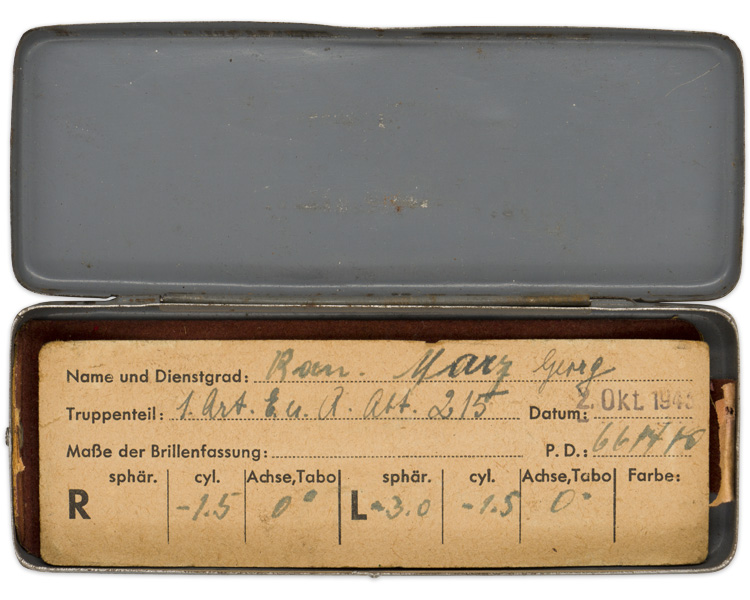 Name und Dienstgrad: Kan. Marz Georg
Truppenteil: 1. Art. E. u. A. Abt. 215 Datum: 2. Okt. 194
Maße der Brillenfassung: P.D.: 66
sphär. cyl. Achse,Tabo sphär. cyl. Achse,Tabo Farbe:
R -1.5 0° L -3.0 -1.5 0°